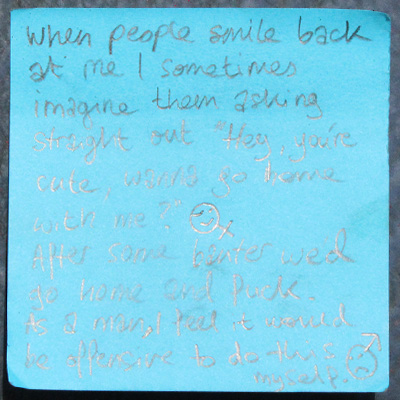 when people smile back
at me I sometimes
imagine them asking
straight out "Hey, you're
cute, wanna go home
with me?"
After some banter we'd
go home and fuck.
As a man, I feel it would
be offensive to do this
myself.